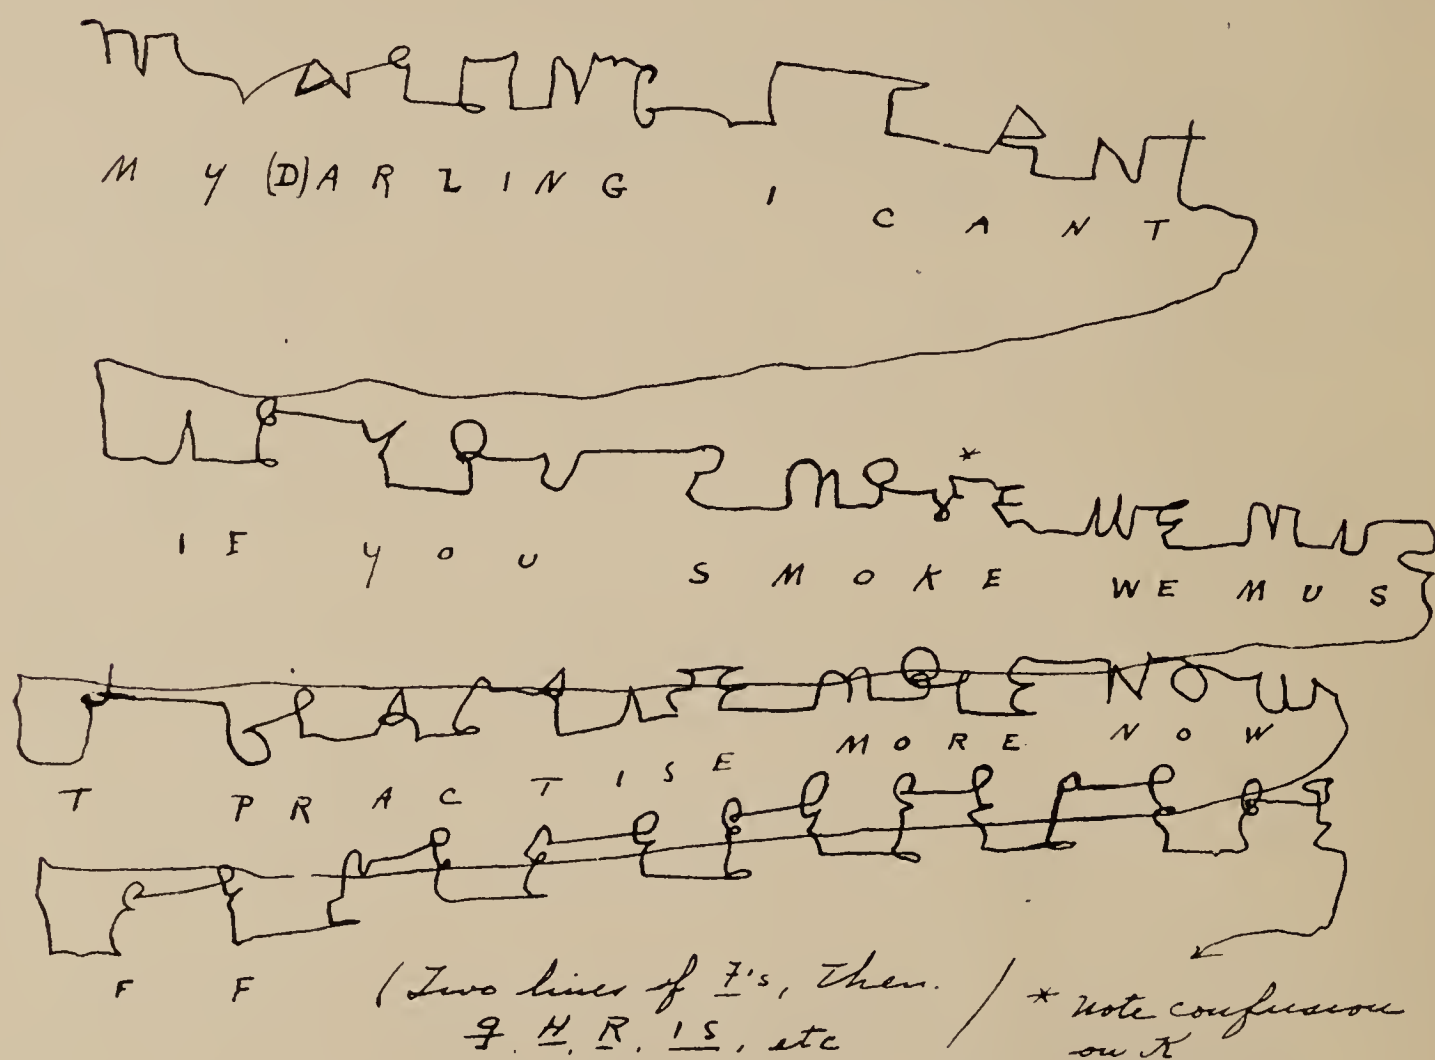 M Y (D)ARLING I CANT
IF YOU SMOKE * WE MUS
T PRACTISE MORE NOW
F F (Two lines of F's, then
g. H. R. IS, etc
* note confusion
on K